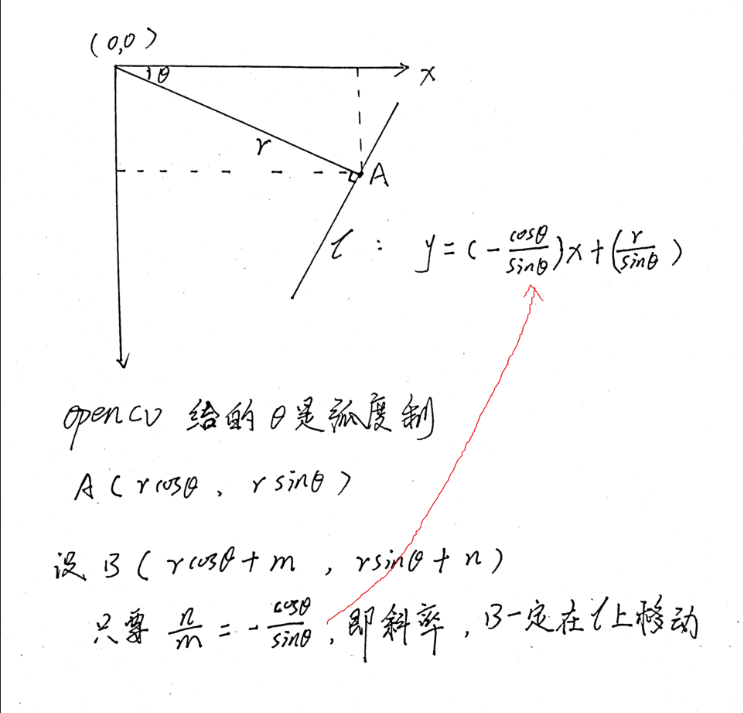 (0,0)
θ
x
r
A
l : y=(-cosθ/sinθ)x+(r/sinθ)
opencv 给的θ是弧度制
A(rcosθ, rsinθ)
设B(rcosθ+m, rsinθ+n)
只要 n/m=-cosθ/sinθ, 即斜率, B一定在l上移动